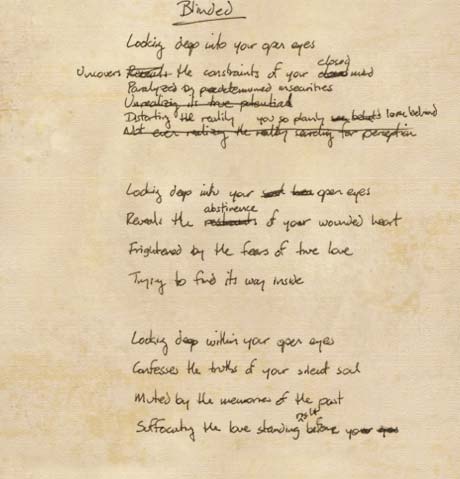 Blinded
Looking deep into your open eyes
Uncovers Reveals the constraints of your closed mind
Paralyzed by predetermined insecurities
Unrealizing its true potential
Distorting the reality you so plainly leave behind
Not ever realizing the reality searching for perception
Looking deep into your open eyes
Reveals the abstinence restraints of your wounded heart
Frightened by the fears of true love
Trying to find its way inside
Looking deep within your open eyes
Confesses the truths of your silent soul
Muted by the memories of the past
Suffocating the love standing before your eyes